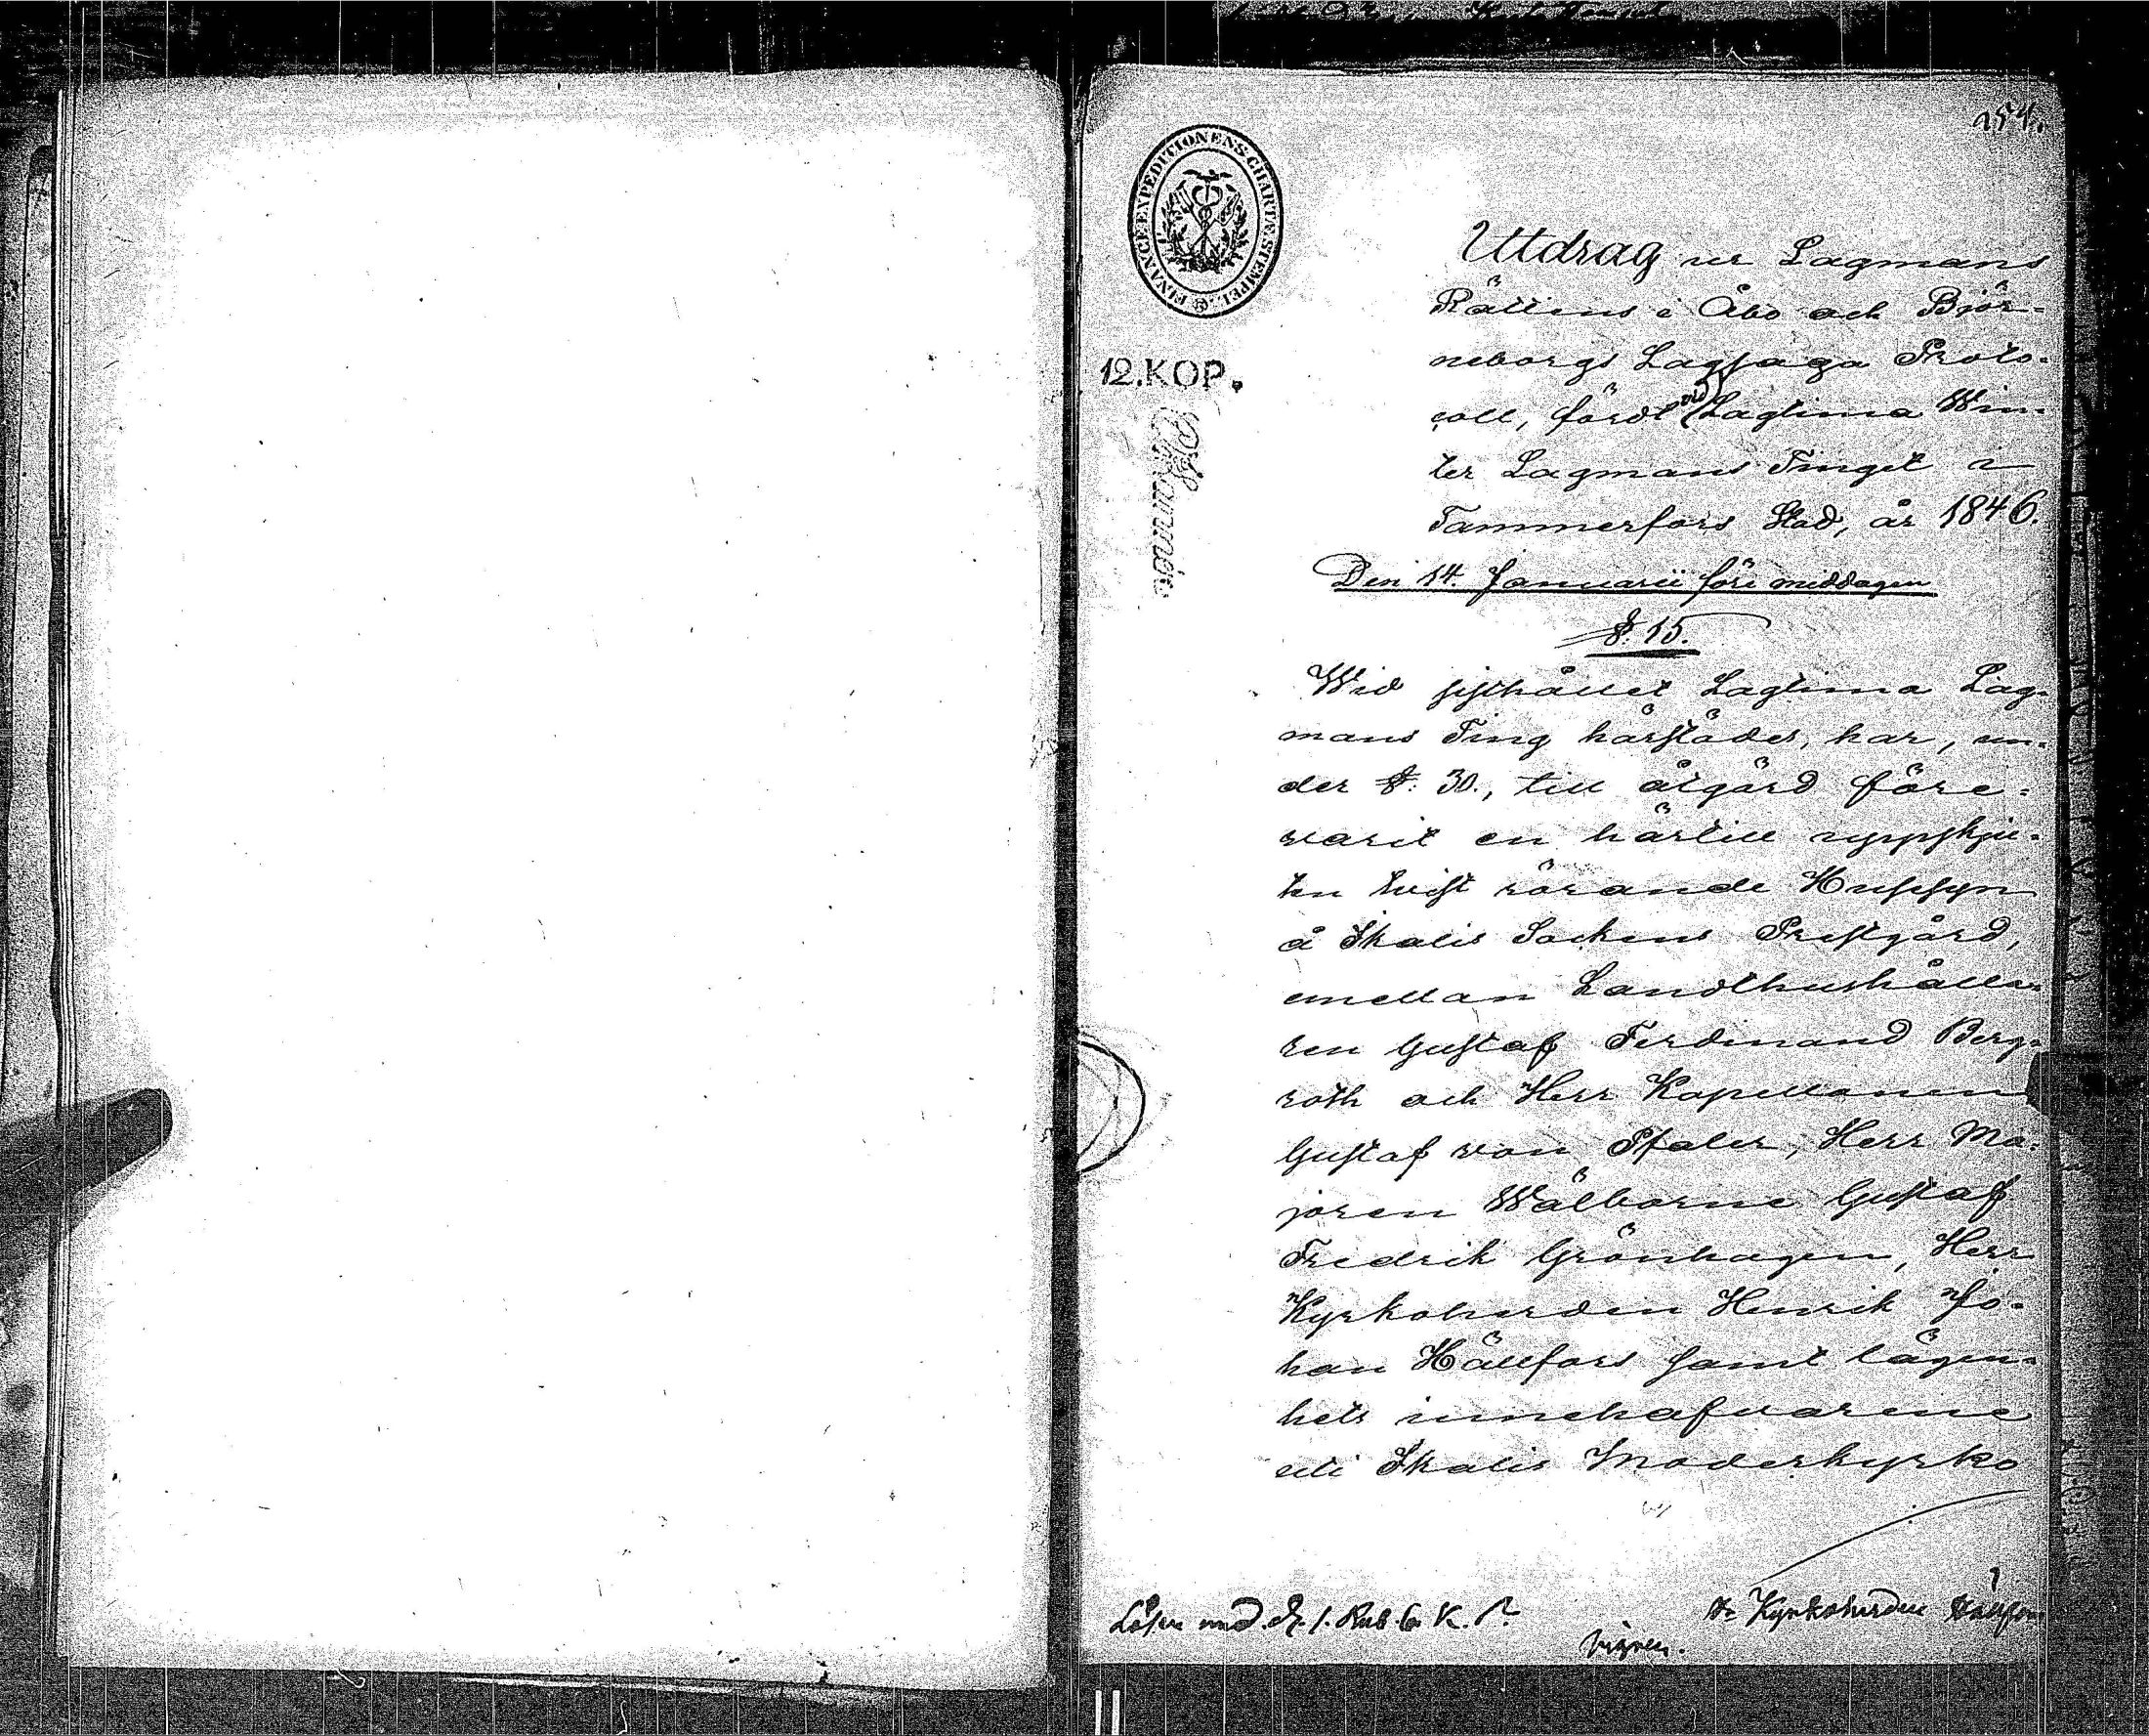 254.
FINANCE-EXPEDITIONENS-CHARTÆ-STEMPEL
12.KOP.
Utdrag ur Lagmans
Rättens i Åbo och Björ-
neborgs Lagsaga Proto-
coll, fördt vid Lagtima Win-
ter Lagmans Tinget i
Tammerfors Stad, år 1846.
Den 14. Januarii före middagen
§. 15.
Wid sisthållet Lagtima Lag-
mans Ting härstädes, har, un-
der §. 30., till åtgärd före-
varit en härtill uppskju-
ten tvist rörande Hussyn
å Ikalis Sockens Prestgård,
emellan Landthushålla-
ren Gustaf Ferdinand Berg-
roth och Herr Kapellanen
Gustaf von Pfaler, Herr Ma-
joren Wälborne Gustaf
Fredrik Grönhagen, Herr
Kyrkoherden Henrik Jo-
han Hällfors samt lägen-
hets innehafvarene
uti Ikalis Moderkyrko
Lösen med 1. Rub 6 K. S.
Hr Kyrkoherden Hällfors